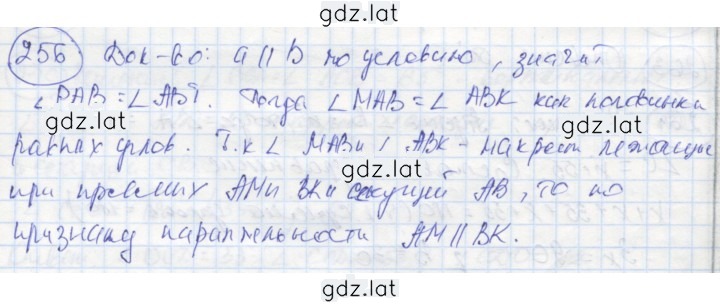 gdz.lat
256 Док-во: a || b по условию, значит
gdz.lat
∠ DAB = ∠ ABT. Тогда ∠ MAB = ∠ ABK как половинки
gdz.lat
равных углов. Т.к ∠ MAB и ∠ ABK - накрест лежащие
gdz.lat
при прямых AM и BK и секущей AB, то по
gdz.lat
признаку параллельности AM || BK.
gdz.lat